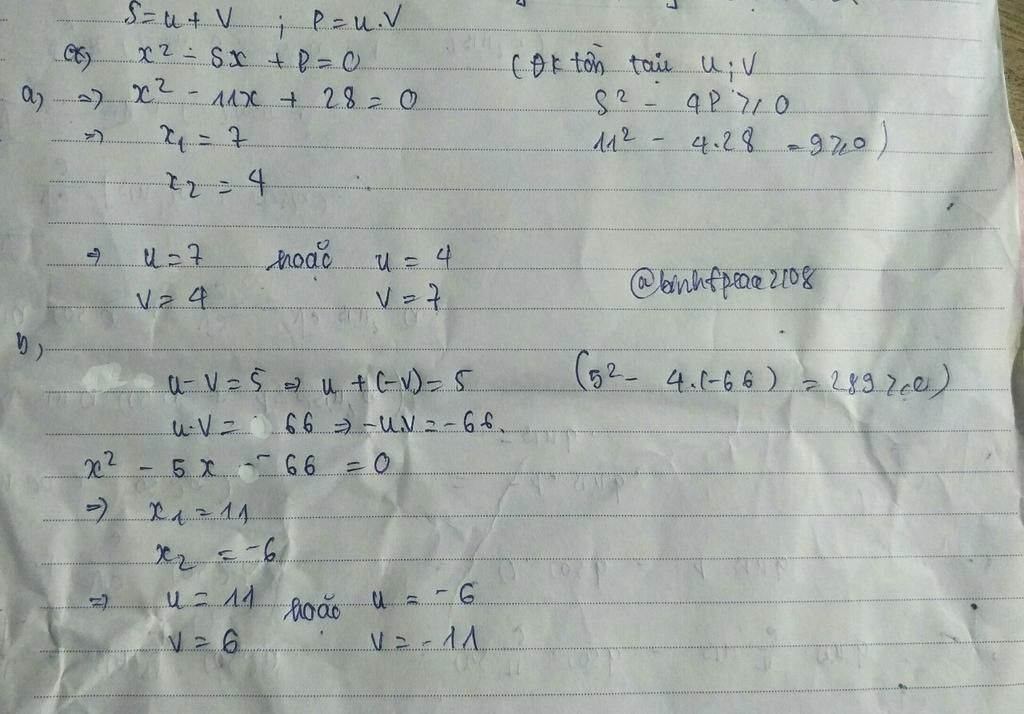 S=u+V ; P=u.V
x² - Sx + P = 0 (ĐK tồn tại u; V
a, => x² - 11x + 28 = 0 S² - 4P ≥ 0
=> x₁ = 7 11² - 4.28 = 9 ≥ 0)
x₂ = 4
=> u = 7 hoặc u = 4
V = 4 V = 7
b,
u - V = 5 => u + (-V) = 5 (5² - 4.(-66) = 289 ≥ 0)
u.V = 66 => -u.V = -66.
x² - 5x - 66 = 0
=> x₁ = 11
x₂ = -6
=> u = 11 hoặc u = -6
V = 6 V = -11